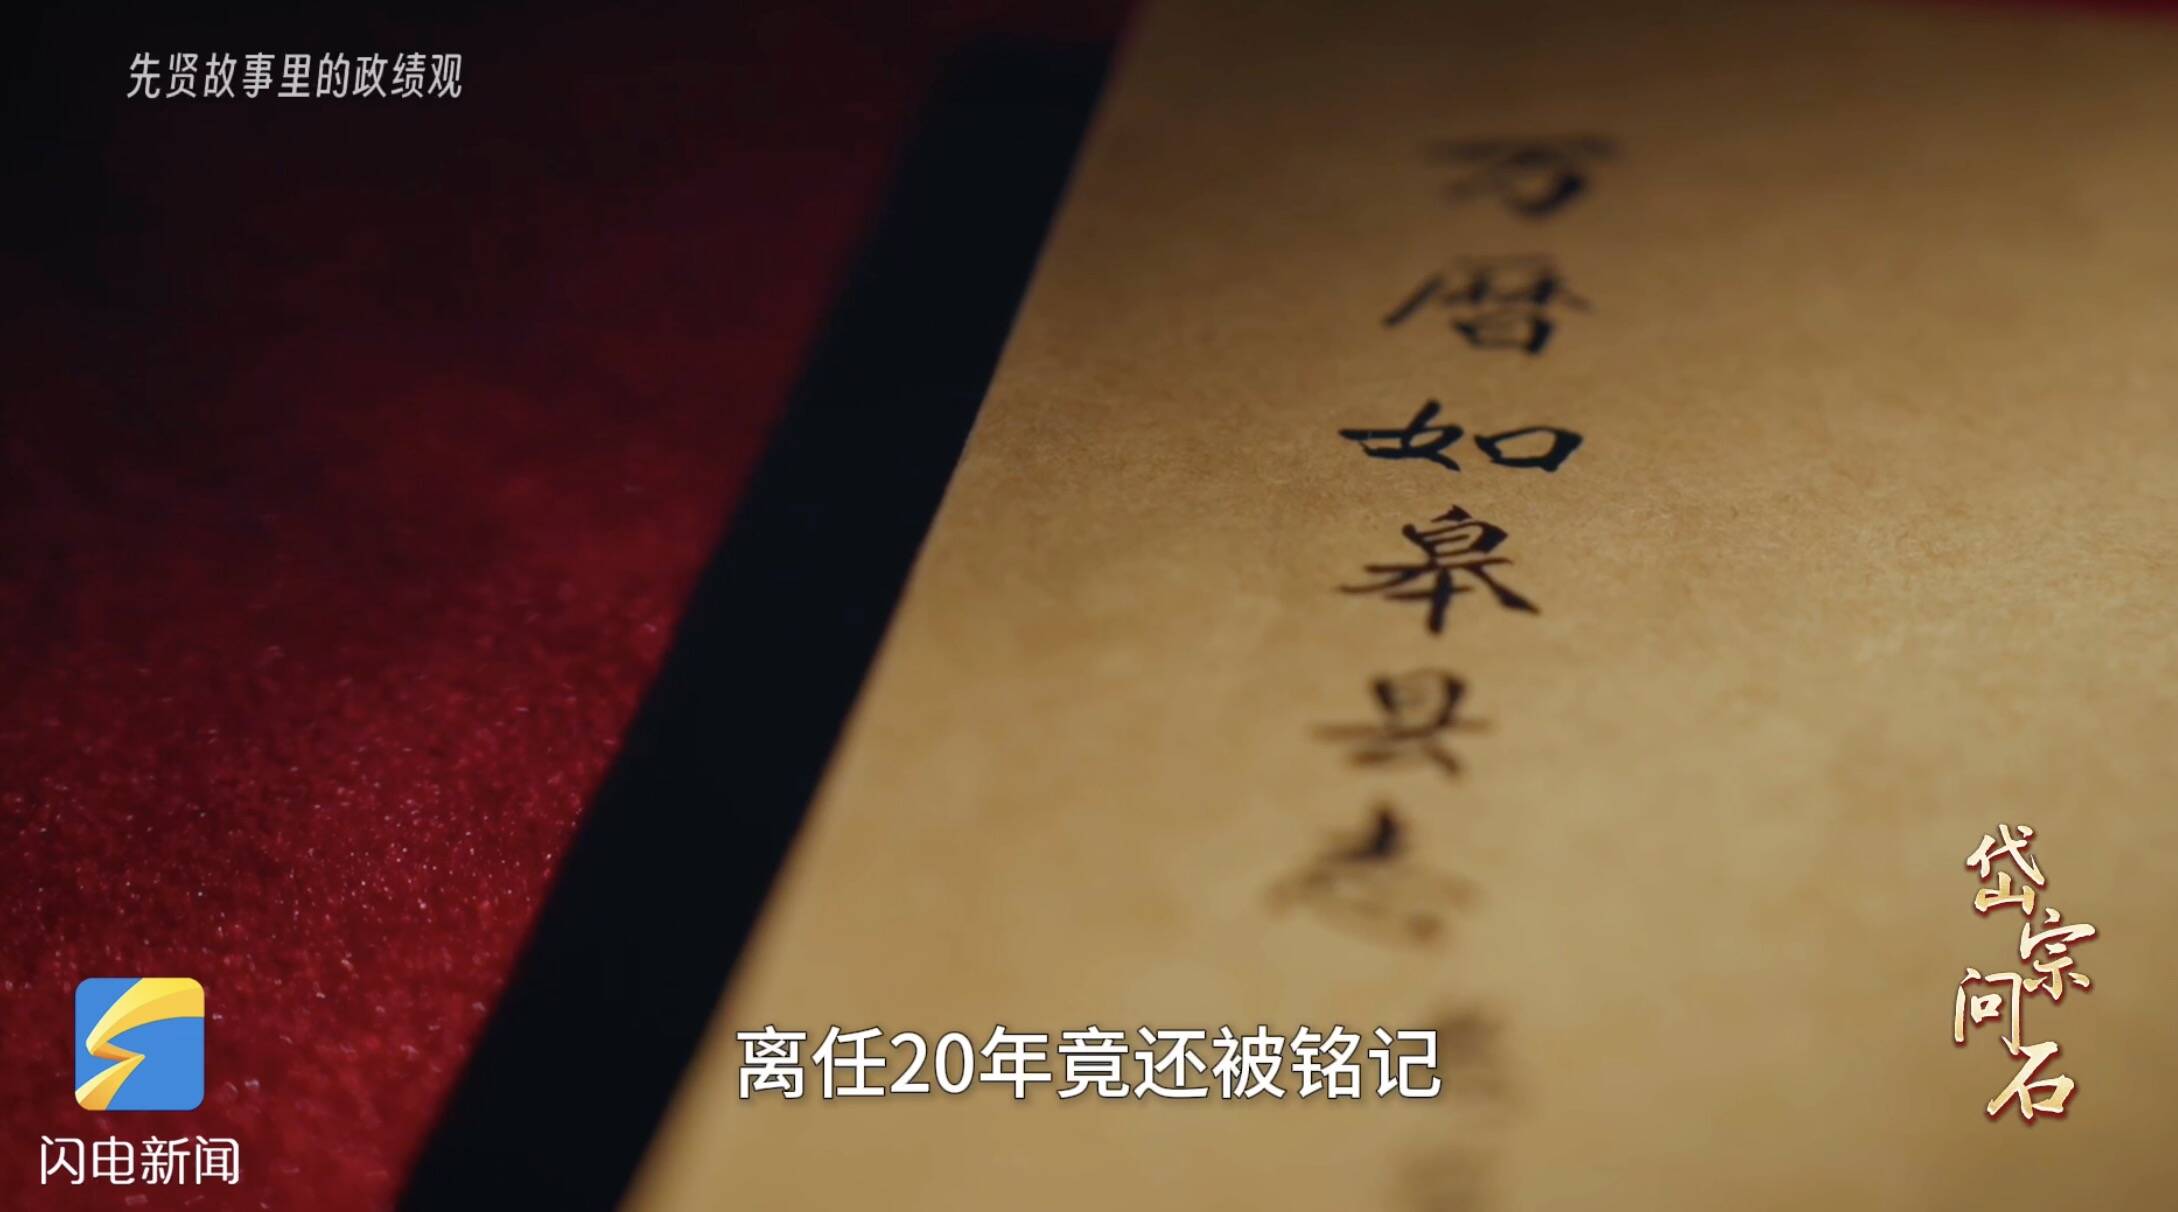 先贤故事里的政绩观
万
暦
如
皋
县
志
离任20年竟还被铭记
岱宗问石
闪电新闻